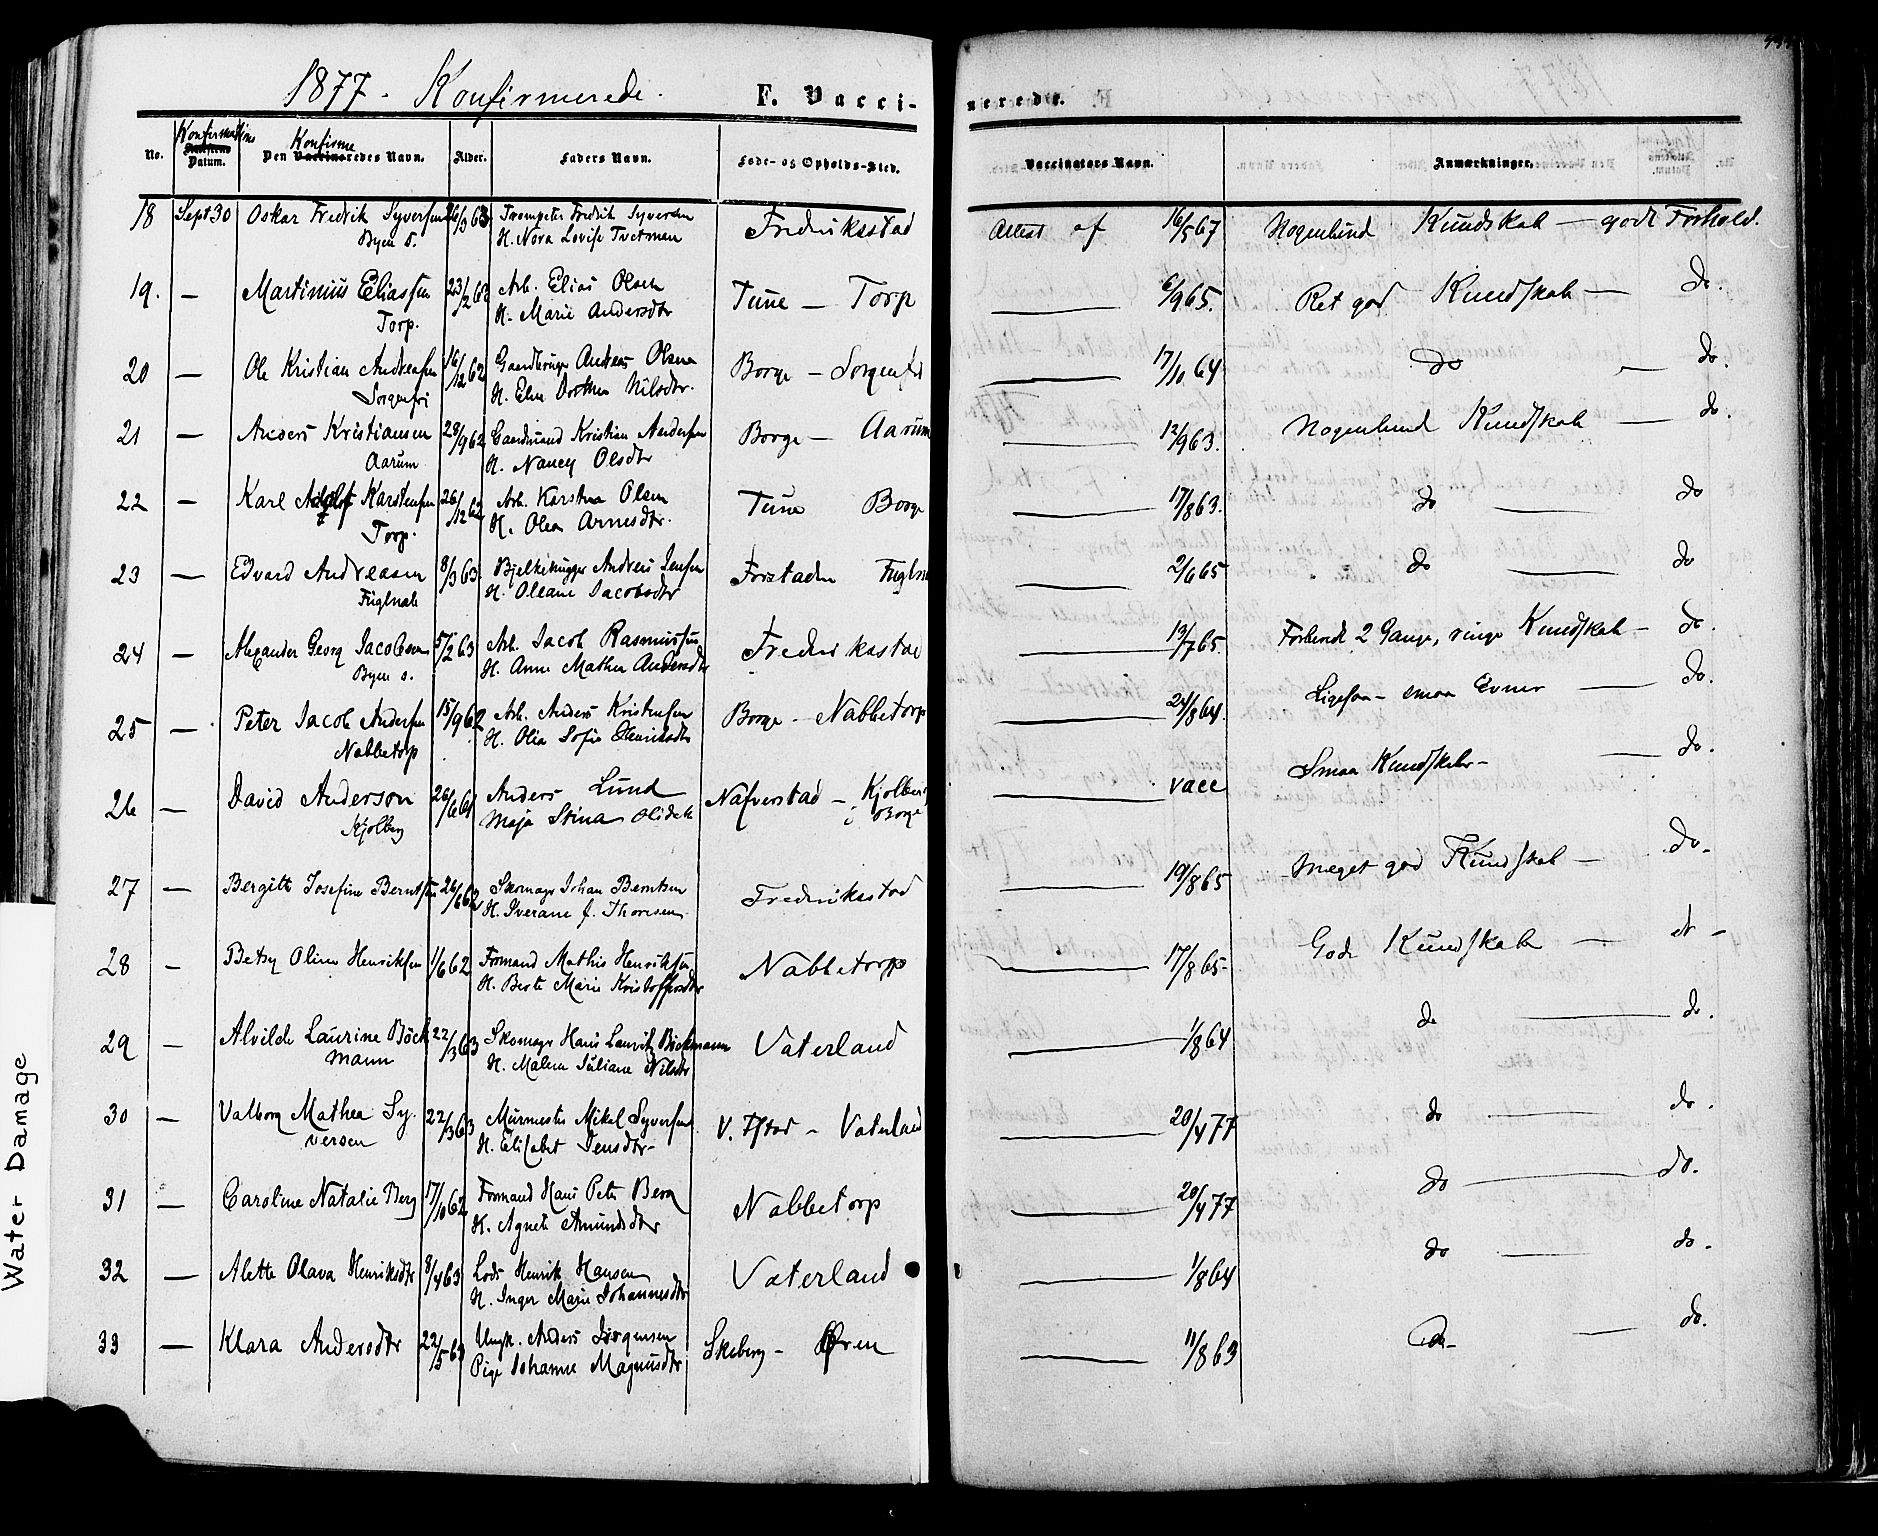 1877 - Konfirmerede.
F. Vacci-
nerede.
No.
Konfirmations
Datum.
Konfirme
Den Vaccineredes Navn.
Alder.
Faders Navn.
Føde- og Opholds-Sted.
Vaccinators Navn.
Anmærkninger.
18 Sept 30 Oskar Fredrik Syversen 63 Trompeter Fredrik Syversen Fredriksstad Attest af 16/5 67 Nogenlund Kundskab — godt Forhold.
Byen H. Nora Lovise Tvetman
19. — Martinius Eliassen 23/2 63 Arb. Elias Olsen Tune — Torp — 6/9 65. Ret god Kundskab — do.
Torp. H. Marie Andersdtr
20 — Ole Kristian Andreasen 16/12 62 Gaardbruger Andreas Olsen Borge — Sorgenfri — 17/10 64 do — do.
Sorgenfri H. Nilsdtr.
21 — Anders Kristiansen 28/9 62 Gaardmand Kristian Andersen Borge — Aarum — 12/9 63. Nogenlund Kundskab — do.
Aarum H. Nancy Olsdtr
22 — Karl Adolf Karstensen 26/12 62 Arb. Karsten Olsen Tune Borge — 17/8 63. do — do
Torp. H. Olea Arnesdtr.
23 — Edvard Andreasen 8/3 63 Bjelkehugger Andreas Jensen Forstaden — 2/6 65 do — do
H. Oleane Jacobsdtr
24 — Alexander Georg Jacobsen 5/2 63 Arb. Jacob Rasmussen Fredriksstad — 13/7 65. Forberedt 2 Gange, ringe Kundskab — do.
Byen H. Anne Mathea Andersdtr
25 — Peter Jacob Andersen 15/9 62 Arb. Anders Kristensen Borge - Nabbetorp — 24/8 64. Ligesaa - smaa Evner — do.
Nabbetorp H. Olia Sofie Henriksdtr
26 — David Anderson 26/6 61 Anders Lund Nafverstad — Kjølberg — vacc Smaa Kundskaber — do.
Kjølberg Maja Stina i Borge
27 — Bergitte Josefine Berntsen 26/6 62 Skomager Johan Berntsen Fredriksstad — 19/8 65 Meget god Kundskab — do.
H. Iverane f. Thoresen
28 — Betsy Oline Henriksen 1/6 62 Formand Mathis Henriksen Nabbetorp — 17/8 65- God Kundskab —
H. Berte Marie Kristoffersdtr
29 — Alvilde Laurine Böck 22/3 63 Skomager Hans Lauritz Böckmann Vaterland — 1/8 64 do — do.
mann H. Malene Juliane Nilsdtr
30 — Valborg Mathea Sy- 22/3 63 Murmester Mikal Syversen V. Fstad - Vaterland — 20/4 77 do — do.
versen H. Elisabet Jensdtr-
31 — Caroline Natalie Berg 17/10 62 Formand Hans Peter Berg Nabbetorp — 20/4 77 do — do.
H. Agnete Amundsdtr
32 — Alette Olava Henriksdtr 8/4 63 Lods Henrik Hansen Vaterland — 1/8 64 do — do.
H. Inger Marie Johannesdtr
33 — Klara Andersdtr 22/5 63 Ungk. Anders Jörgensen Skeberg - Øren — 11/8 63 do — do.
Pige Johanne Magnusdtr
Water Damage